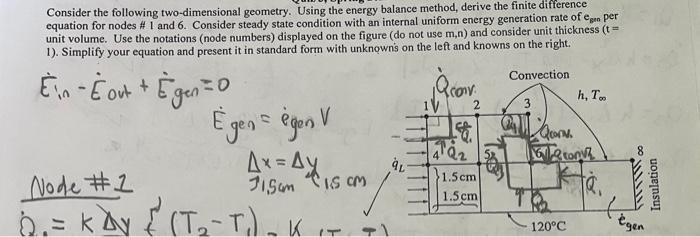 Consider the following two-dimensional geometry. Using the energy balance method, derive the finite difference
equation for nodes # 1 and 6. Consider steady state condition with an internal uniform energy generation rate of e_gen per
unit volume. Use the notations (node numbers) displayed on the figure (do not use m,n) and consider unit thickness (t =
1). Simplify your equation and present it in standard form with unknowns on the left and knowns on the right.
Ėin - Ėout + Ėgen = 0
Ėgen = ėgen V
Δx = Δy
1.5cm 1.5 cm
Node #1
Q̇. = k Δy t (T₂ - T₁)
Convection
h, T∞
Q̇conv.
1 2 3
Q̇conv.
4 Q̇₂ 5 6 Q̇conv 8
q̇L
1.5cm
1.5cm
Q̇₁
Q̇₂
Insulation
120°C
ėgen